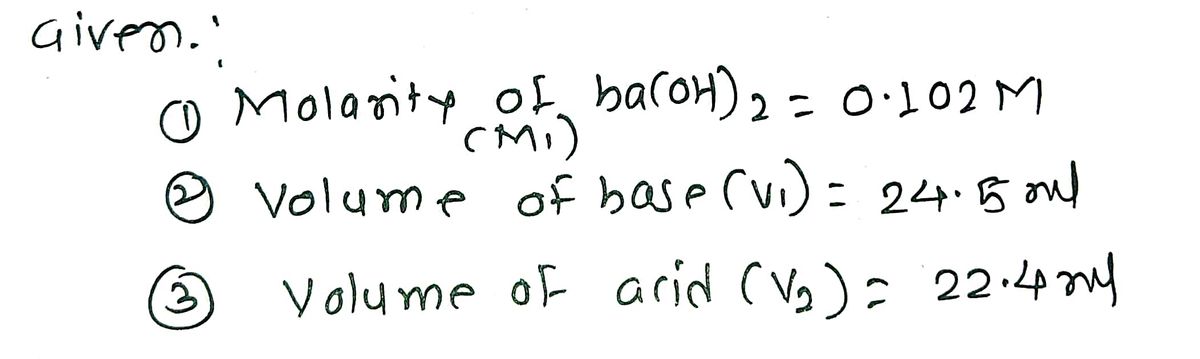 Given:
① Molarity of ba(OH)2 = 0.102 M
(M1)
② Volume of base (V1) = 24.5 ml
③ Volume of acid (V2) = 22.4 ml